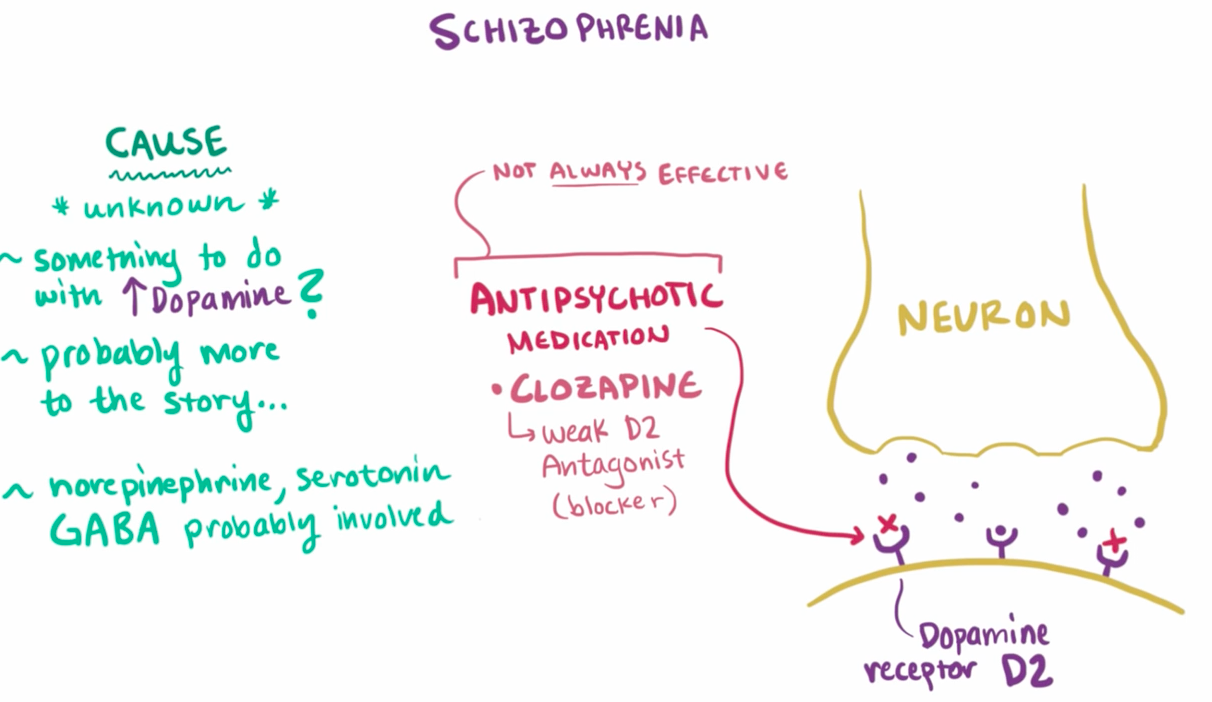 SCHIZOPHRENIA
CAUSE
* unknown *
~ something to do
with ↑Dopamine?
~ probably more
to the story...
~ norepinephrine, serotonin
GABA probably involved
NOT ALWAYS EFFECTIVE
ANTIPSYCHOTIC
MEDICATION
• CLOZAPINE
↳ weak D2
Antagonist
(blocker)
NEURON
Dopamine
receptor D2